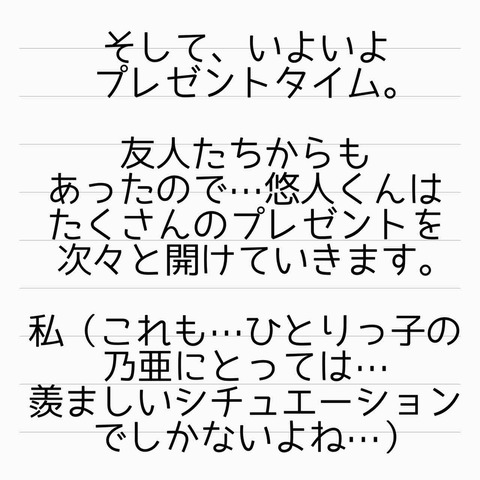 そして、いよいよ
プレゼントタイム。
友人たちからも
あったので…悠人くんは
たくさんのプレゼントを
次々と開けていきます。
私（これも…ひとりっ子の
乃亜にとっては…
羨ましいシチュエーション
でしかないよね…）